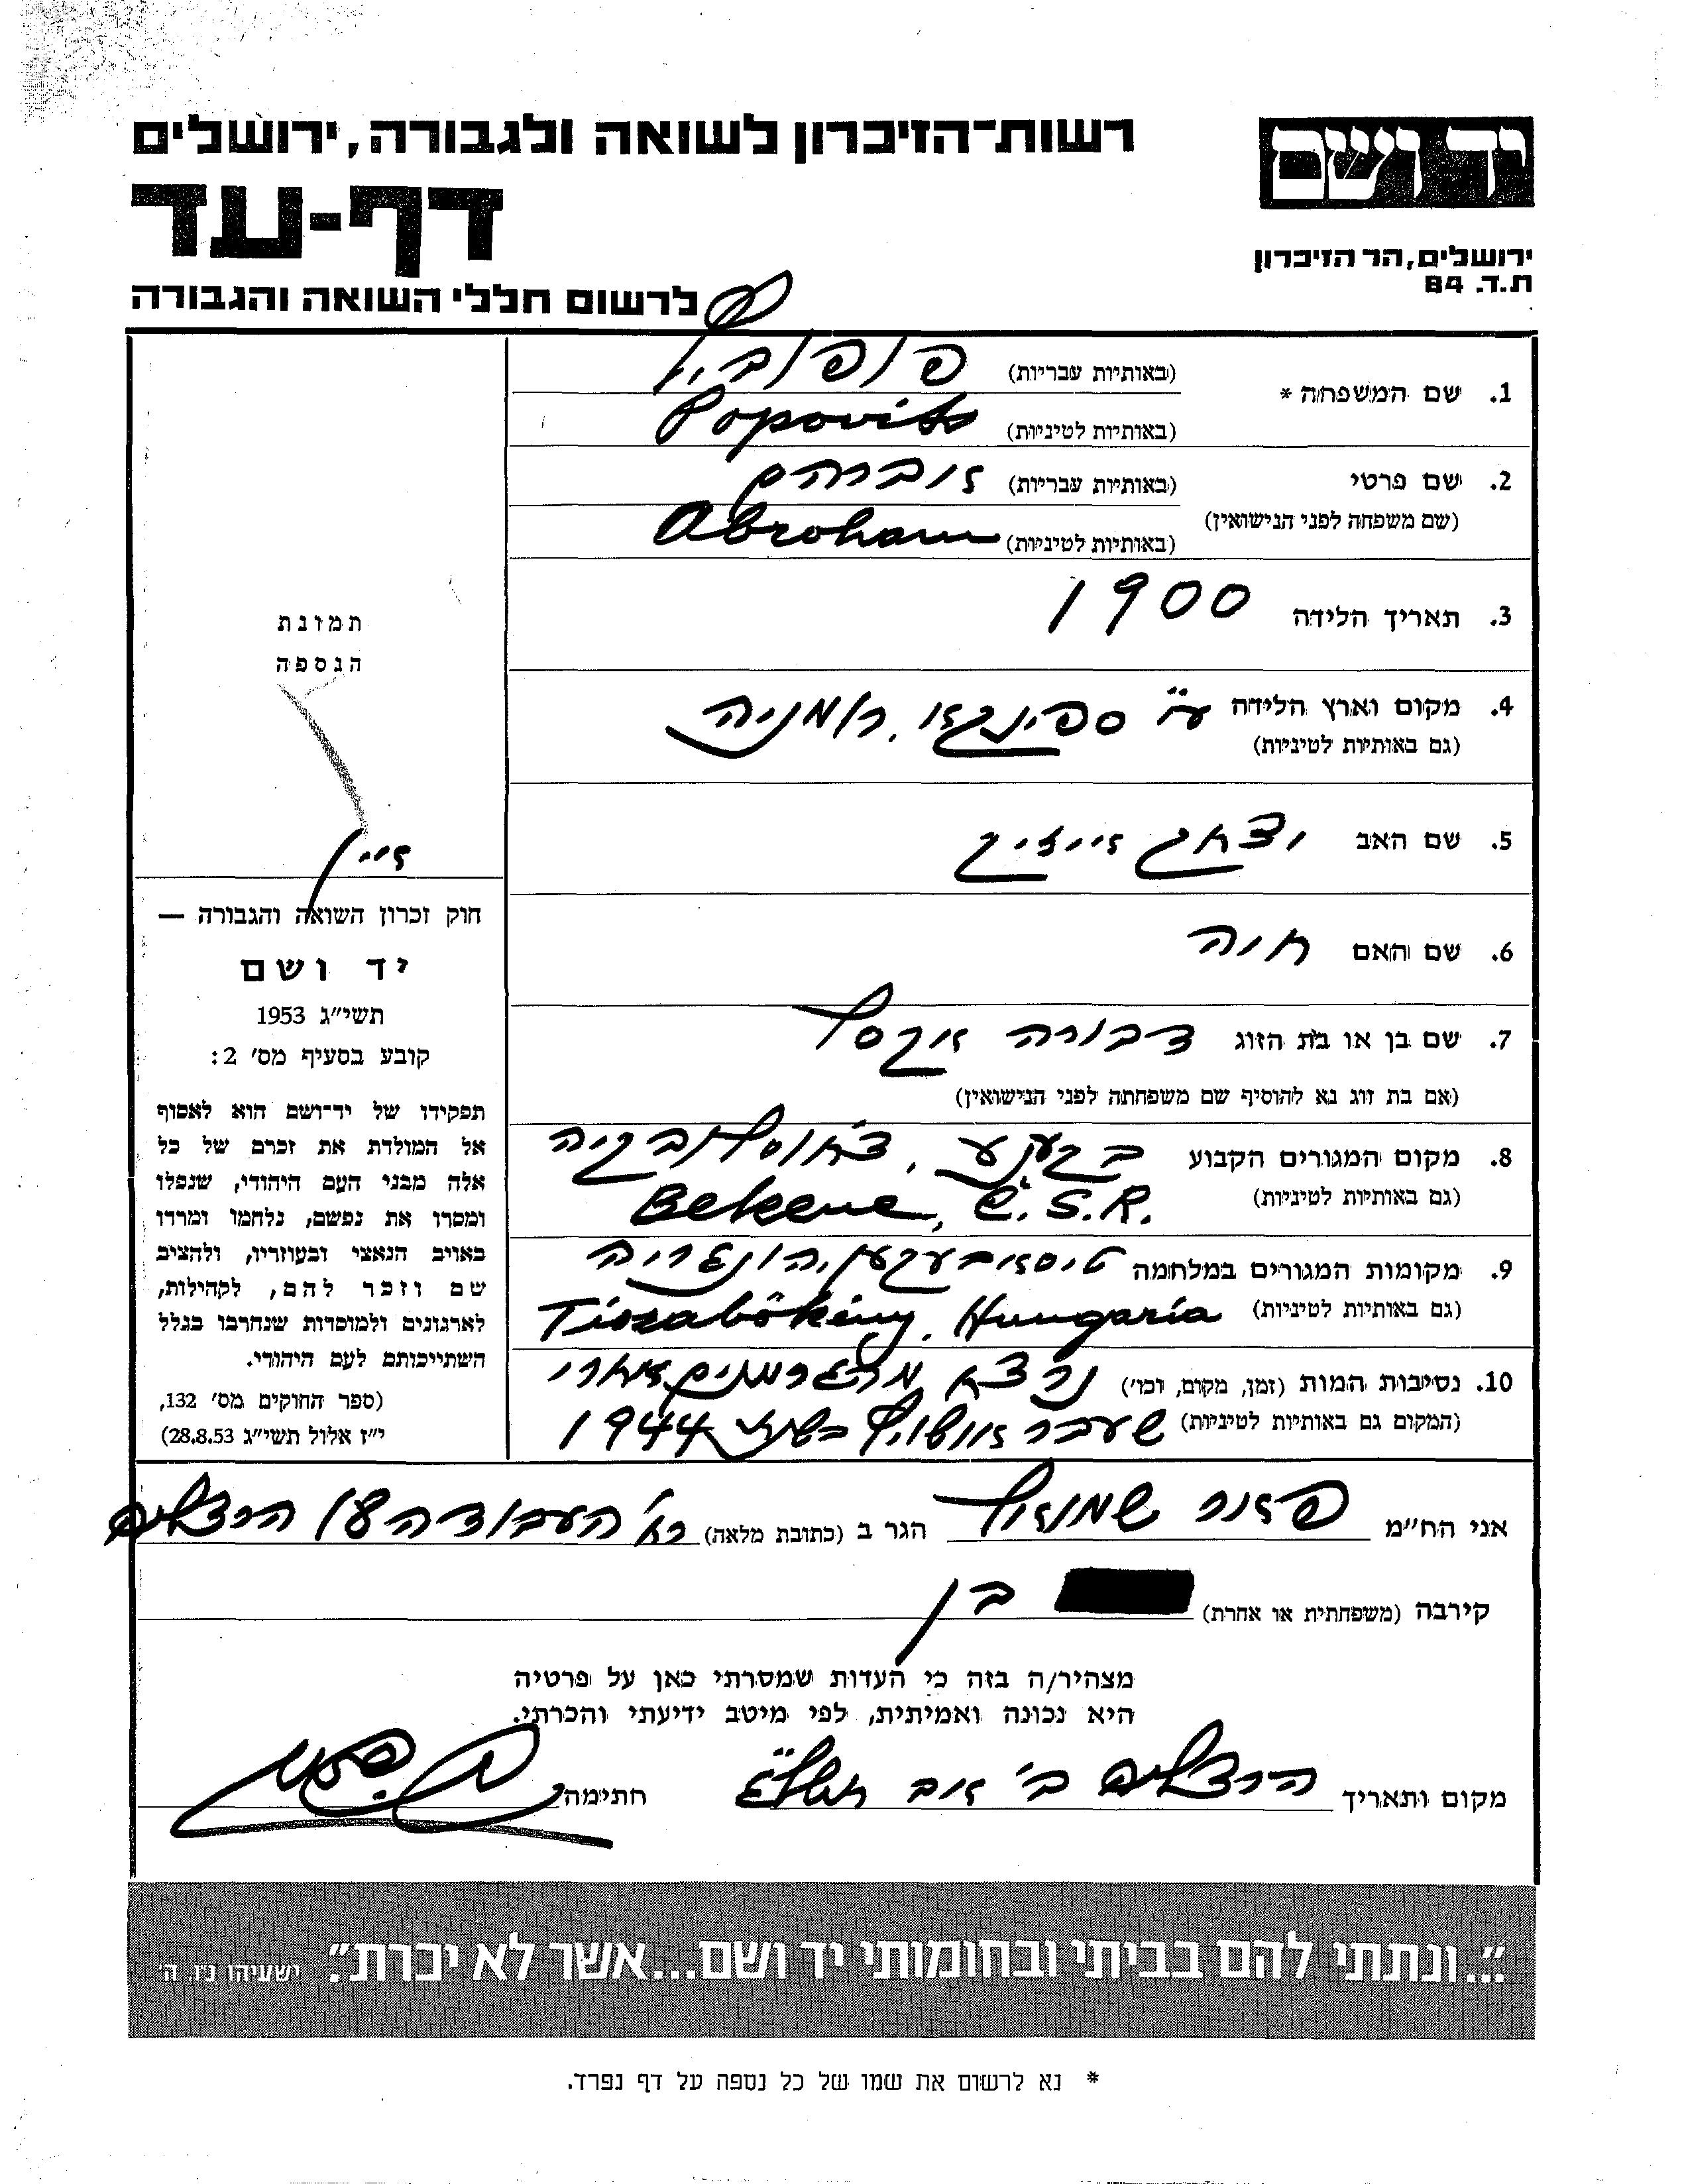 רשות־הזיכרון לשואה ולגבורה, ירושלים
יד ושם
דף-עד
ירושלים, הר הזיכרון
ת.ד. 84
לרשום חללי השואה והגבורה
1. שם המשפחה * (באותיות עבריות) פופוביץ
(באותיות לטיניות) Popovits
2. שם פרטי (באותיות עבריות) אברהם
(שם משפחה לפני הנישואין)
(באותיות לטיניות) Abraham
3. תאריך הלידה 1900
4. מקום וארץ הלידה ע״י ספינקא, רומניה
(גם באותיות לטיניות)
5. שם האב יצחק אייזיק
6. שם האם חוה
7. שם בן או בת הזוג דבורה אקסל
(אם בת זוג נא להוסיף שם משפחתה לפני הנישואין)
8. מקום המגורים הקבוע בקענע, צ'כוסלובקיה
(גם באותיות לטיניות) Bekene, C.S.R.
9. מקומות המגורים במלחמה טיסאבעקען, הונגריה
(גם באותיות לטיניות) Tiszabökény, Hungaria
10. נסיבות המות (זמן, מקום, וכו') נרצא מהגרמנים אחרי
(המקום גם באותיות לטיניות) שעבר אוושוויץ בשנת 1944
תמונת
הנספה
אין
חוק זכרון השואה והגבורה —
יד ושם
תשי״ג 1953
קובע בסעיף מס׳ 2:
תפקידו של יד־ושם הוא לאסוף
אל המולדת את זכרם של כל
אלה מבני העם היהודי, שנפלו
ומסרו את נפשם, נלחמו ומרדו
באויב הנאצי ובעוזריו, ולהציב
שם וזכר להם, לקהילות,
לארגונים ולמוסדות שנחרבו בגלל
השתייכותם לעם היהודי.
(ספר החוקים מס׳ 132,
י״ז אלול תשי״ג 28.8.53)
אני הח״מ שמואל הגר ב (כתובת מלאה) רח' העבודה הרצליה
קירבה (משפחתית או אחרת) בן
מצהיר/ה בזה כי העדות שמסרתי כאן על פרטיה
היא נכונה ואמיתית, לפי מיטב ידיעתי והכרתי.
מקום ותאריך הרצליה ב' אב חתימה
"...ונתתי להם בביתי ובחומותי יד ושם...אשר לא יכרת". ישעיהו נ״ו, ה'
* נא לרשום את שמו של כל נספה על דף נפרד.